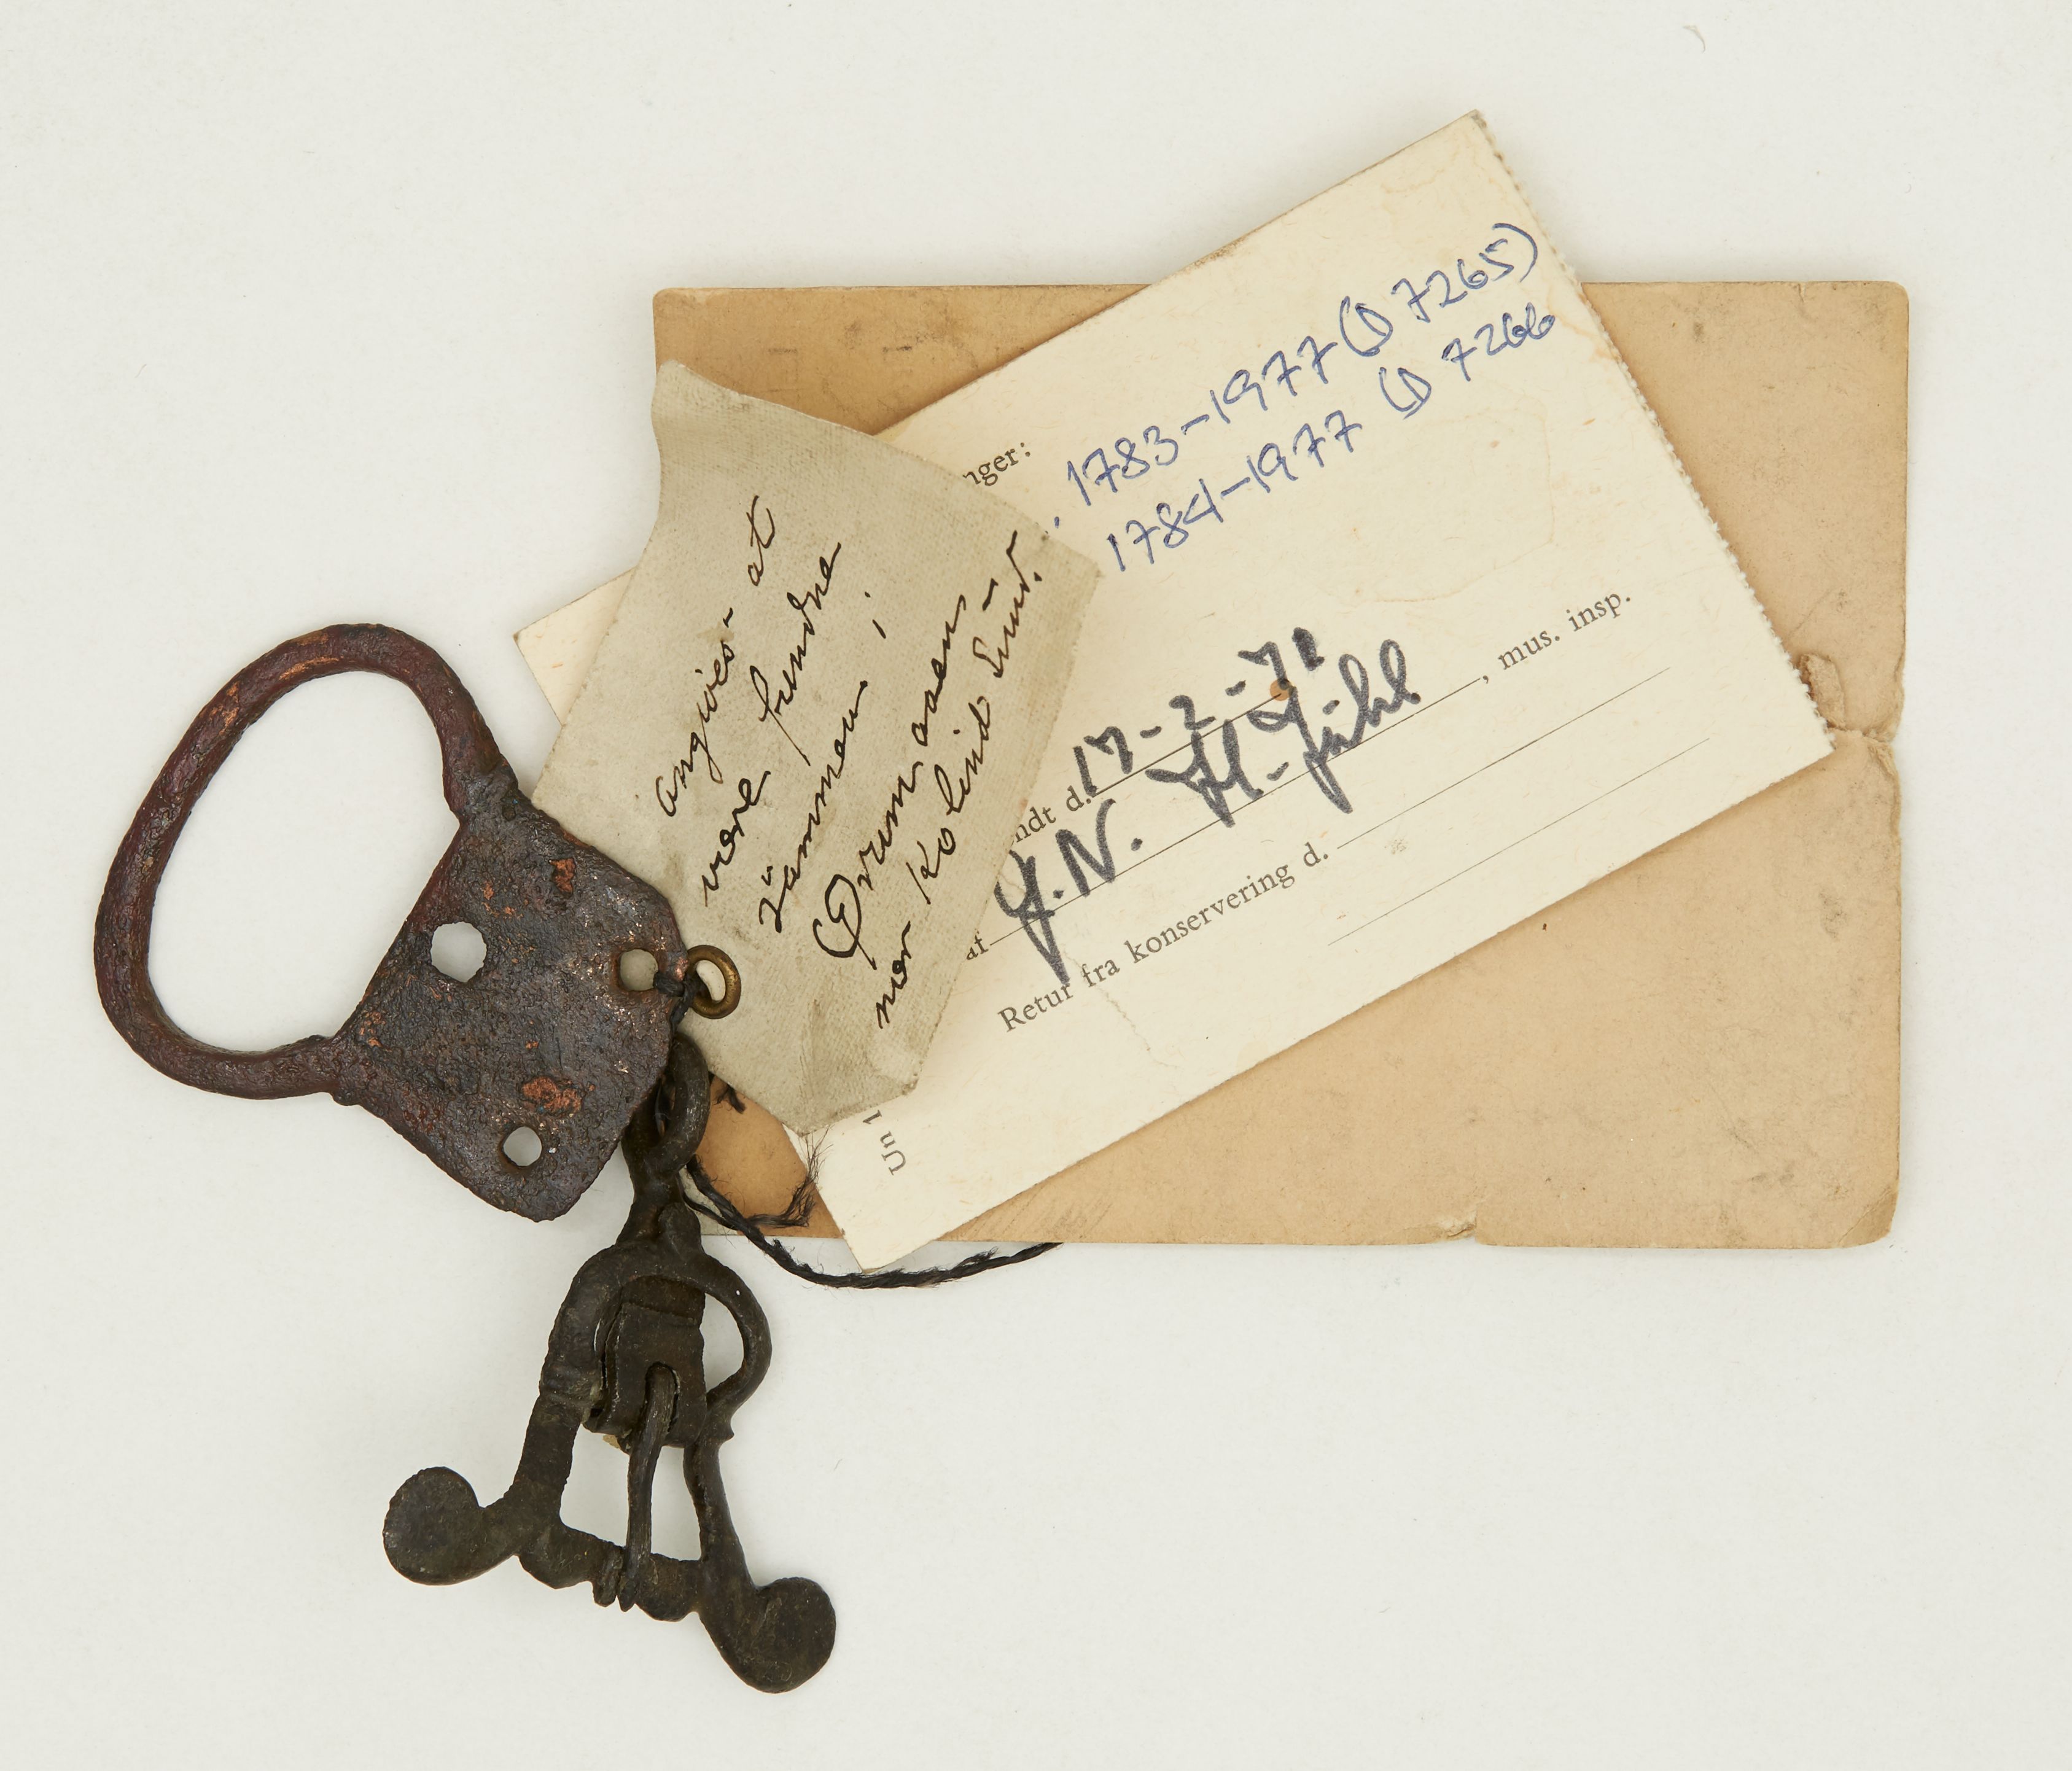 angives at
være fundne
sammen i
Ørum aaen
nær Kolind Sund.
nger:
1783-1977 (D 7265)
1784-1977 (D 7266
ndt d. 17-2-71
af
, mus. insp.
Retur fra konservering d.
Un 1